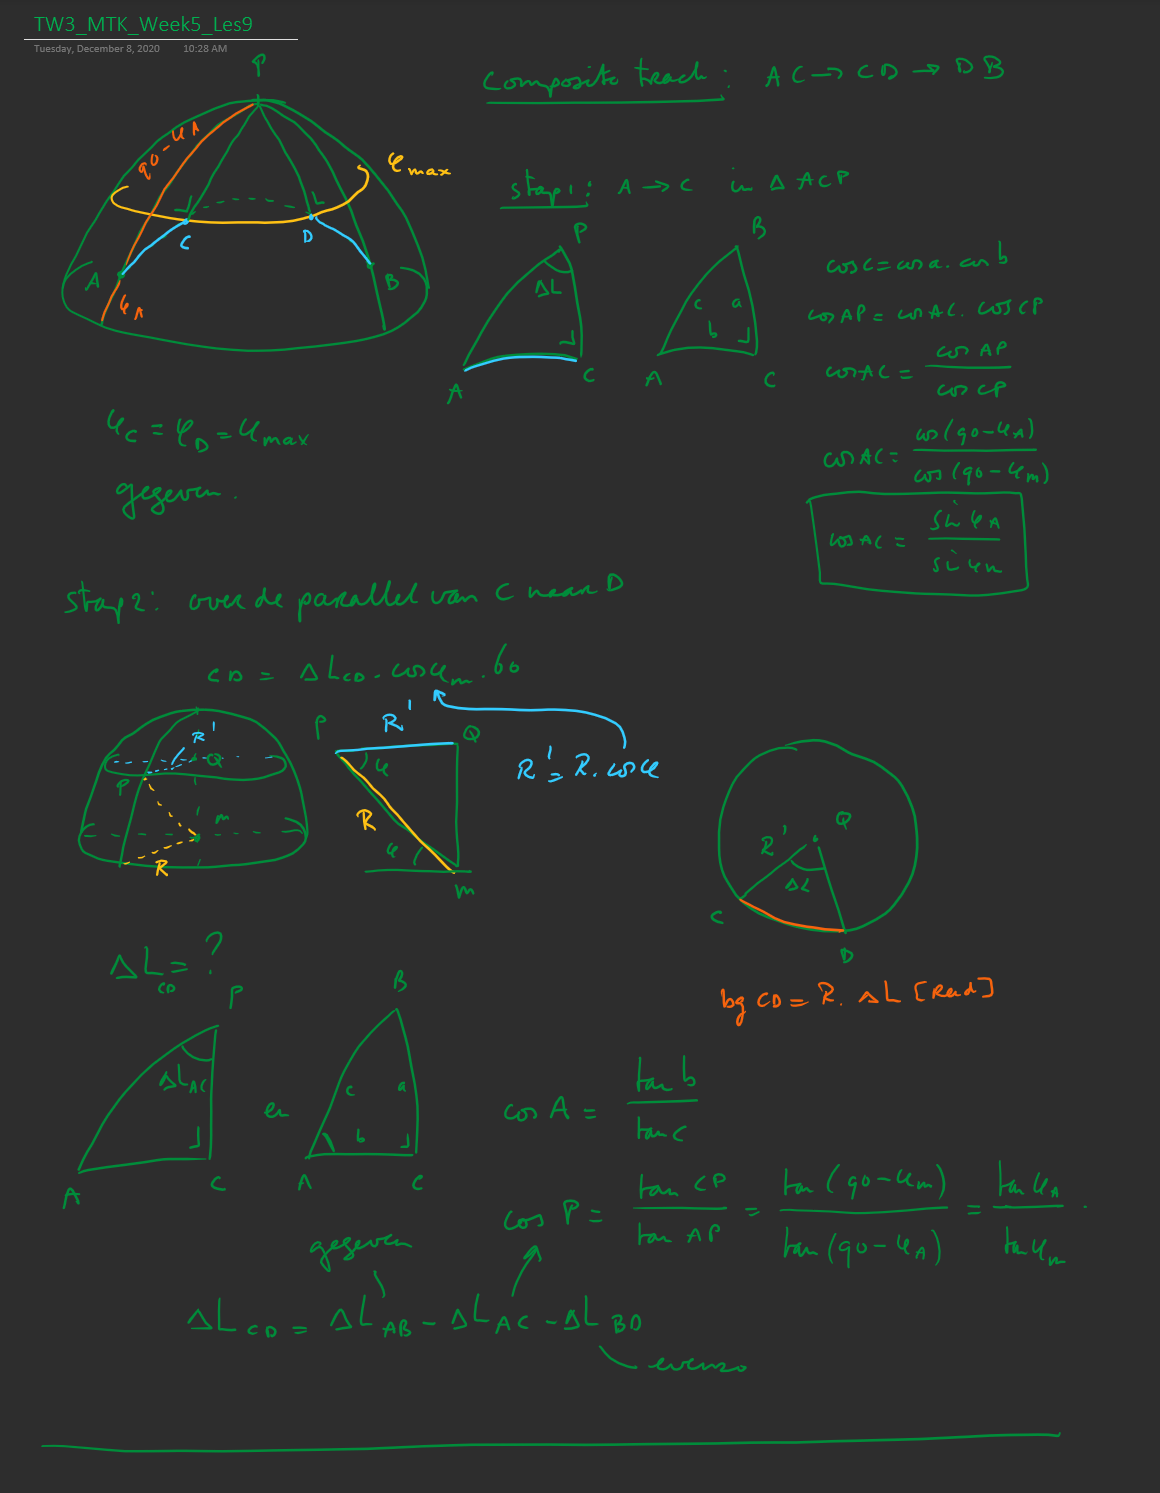 TW3_MTK_Week5_Les9
Tuesday, December 8, 2020 10:28 AM
Composite track: AC → CD → DB
P
90-φA
φmax
C
D
A
B
φA
stap 1: A → C in Δ ACP
P
ΔL
A
C
B
c
a
b
A
C
cos c = cos a . cos b
cos AP = cos AC . cos CP
cos AC = cos AP / cos CP
cos AC = cos(90-φA) / cos(90-φm)
cos AC = sin φA / sin φm
φC = φD = φmax
gegeven.
stap 2: over de parallel van C naar D
CD = ΔLCD . cos φm . 60
R'
Q
P
m
R
P
R'
Q
φ
R
φ
m
R' = R. cos φ
Q
R'
ΔL
C
D
bg CD = R. ΔL [Rad]
ΔLCD = ?
P
ΔLAC
A
C
en
B
c
a
b
A
C
cos A = tan b / tan c
cos P = tan CP / tan AP = tan (90-φm) / tan (90-φA) = tan φA / tan φm .
gegeven
ΔLCD = ΔLAB - ΔLAC - ΔLBD
evenzo